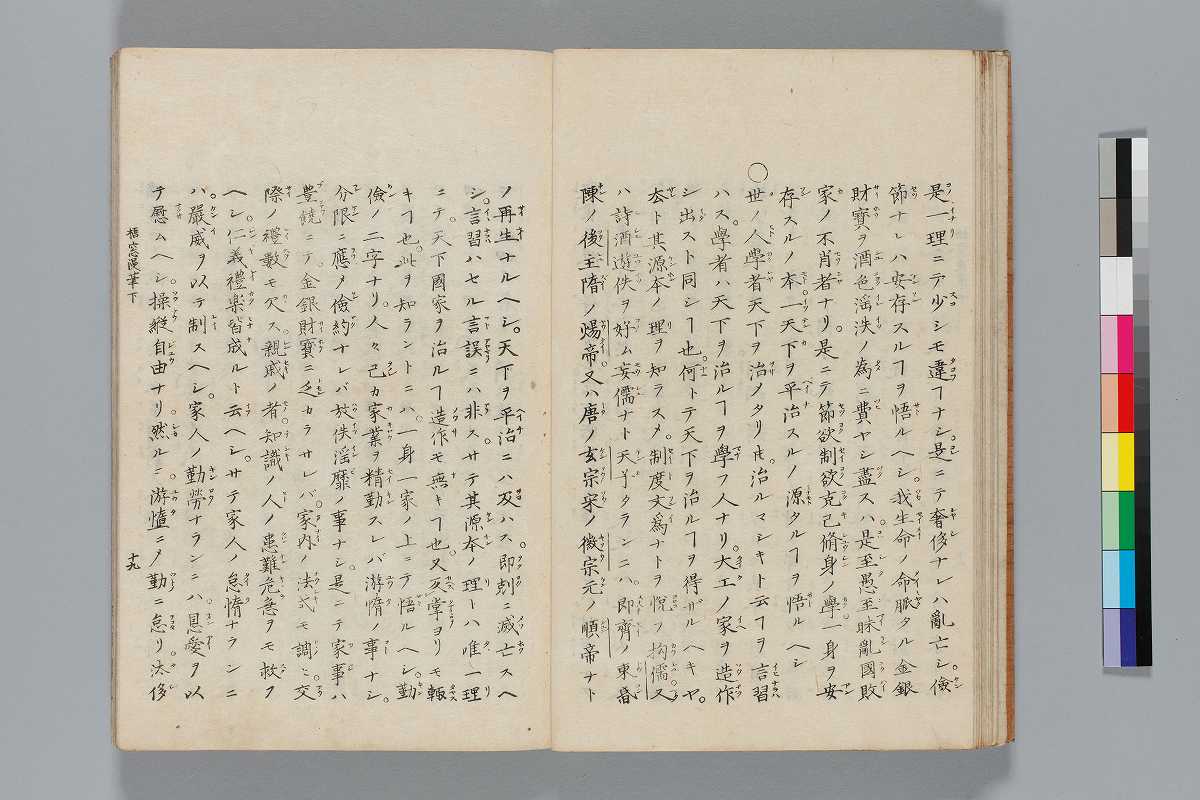 是一理ニテ少シモ違フヿナシ。是ニテ奢侈ナレハ亂亡シ。儉
節ナレハ安存スルヿヲ悟ルヘシ。我生命ノ命脈タル金銀
財寶ヲ酒色滛泆ノ為ニ費ヤシ盡スハ。是至愚至昧亂國敗
家ノ不肖者ナリ。是ニテ節欲制欲克己脩身ノ學。一身ヲ安
存スルノ本。一天下ヲ平治スルノ源タルヿヲ悟ルヘシ
〇世ノ人學者天下ヲ治ノタリ𪜈。治ルマシキト云フヿヲ言習
ハス。學者ハ天下ヲ治ルヿヲ學フ人ナリ。大工ノ家ヲ造作
シ出スト同シヿ也。何トテ天下ヲ治ルヿヲ得ザルヘキヤ。
去ト其源本ノ理ヲ知ラスメ。制度文爲ナトヲ悅フ拘儒。又
ハ詩酒遊佚ヲ好ム妄儒ナト天子タランニハ。即齊ノ東昏
陳ノ後主隋ノ煬帝。又ハ唐ノ玄宗宋ノ徽宗元ノ順帝ナト
ノ再生ナルヘシ。天下ヲ平治ニハ及ハス。即剋ニ滅亡スヘ
シ。言習ハセル言誤ニハ非ス。サテ其源本ノ理トハ唯一理
ニテ。天下國家ヲ治ルヿ造作モ無キヿ也。又反掌ヨリモ輙
キヿ也。此ヲ知ラントニハ。一身一家ノ上ニテ悟ルヘシ。勤
儉ノ二字ナリ。人々己カ家業ヲ精勤スレバ游惰ノ事ナシ。
分限ニ應メ儉約ナレバ放佚滛靡ノ事ナシ。是ニテ家事ハ
豊饒ニテ。金銀財寶ニ乏カラサレバ。家内ノ法式モ調ヒ。交
際ノ禮數モ欠ス。親戚ノ者知識ノ人ノ患難危急ヲモ救フ
ヘシ。仁義禮楽皆成ルト云ヘシ。サテ家人ノ怠惰ナランニ
ハ。嚴威ヲ以テ制スヘシ。家人ノ勤勞ナランニハ。恩愛ヲ以
テ慰ムヘシ。操縱自由ナリ。然ルニ。游惰ニメ勤ニ怠リ。汰侈
梧窓漫筆下
十九